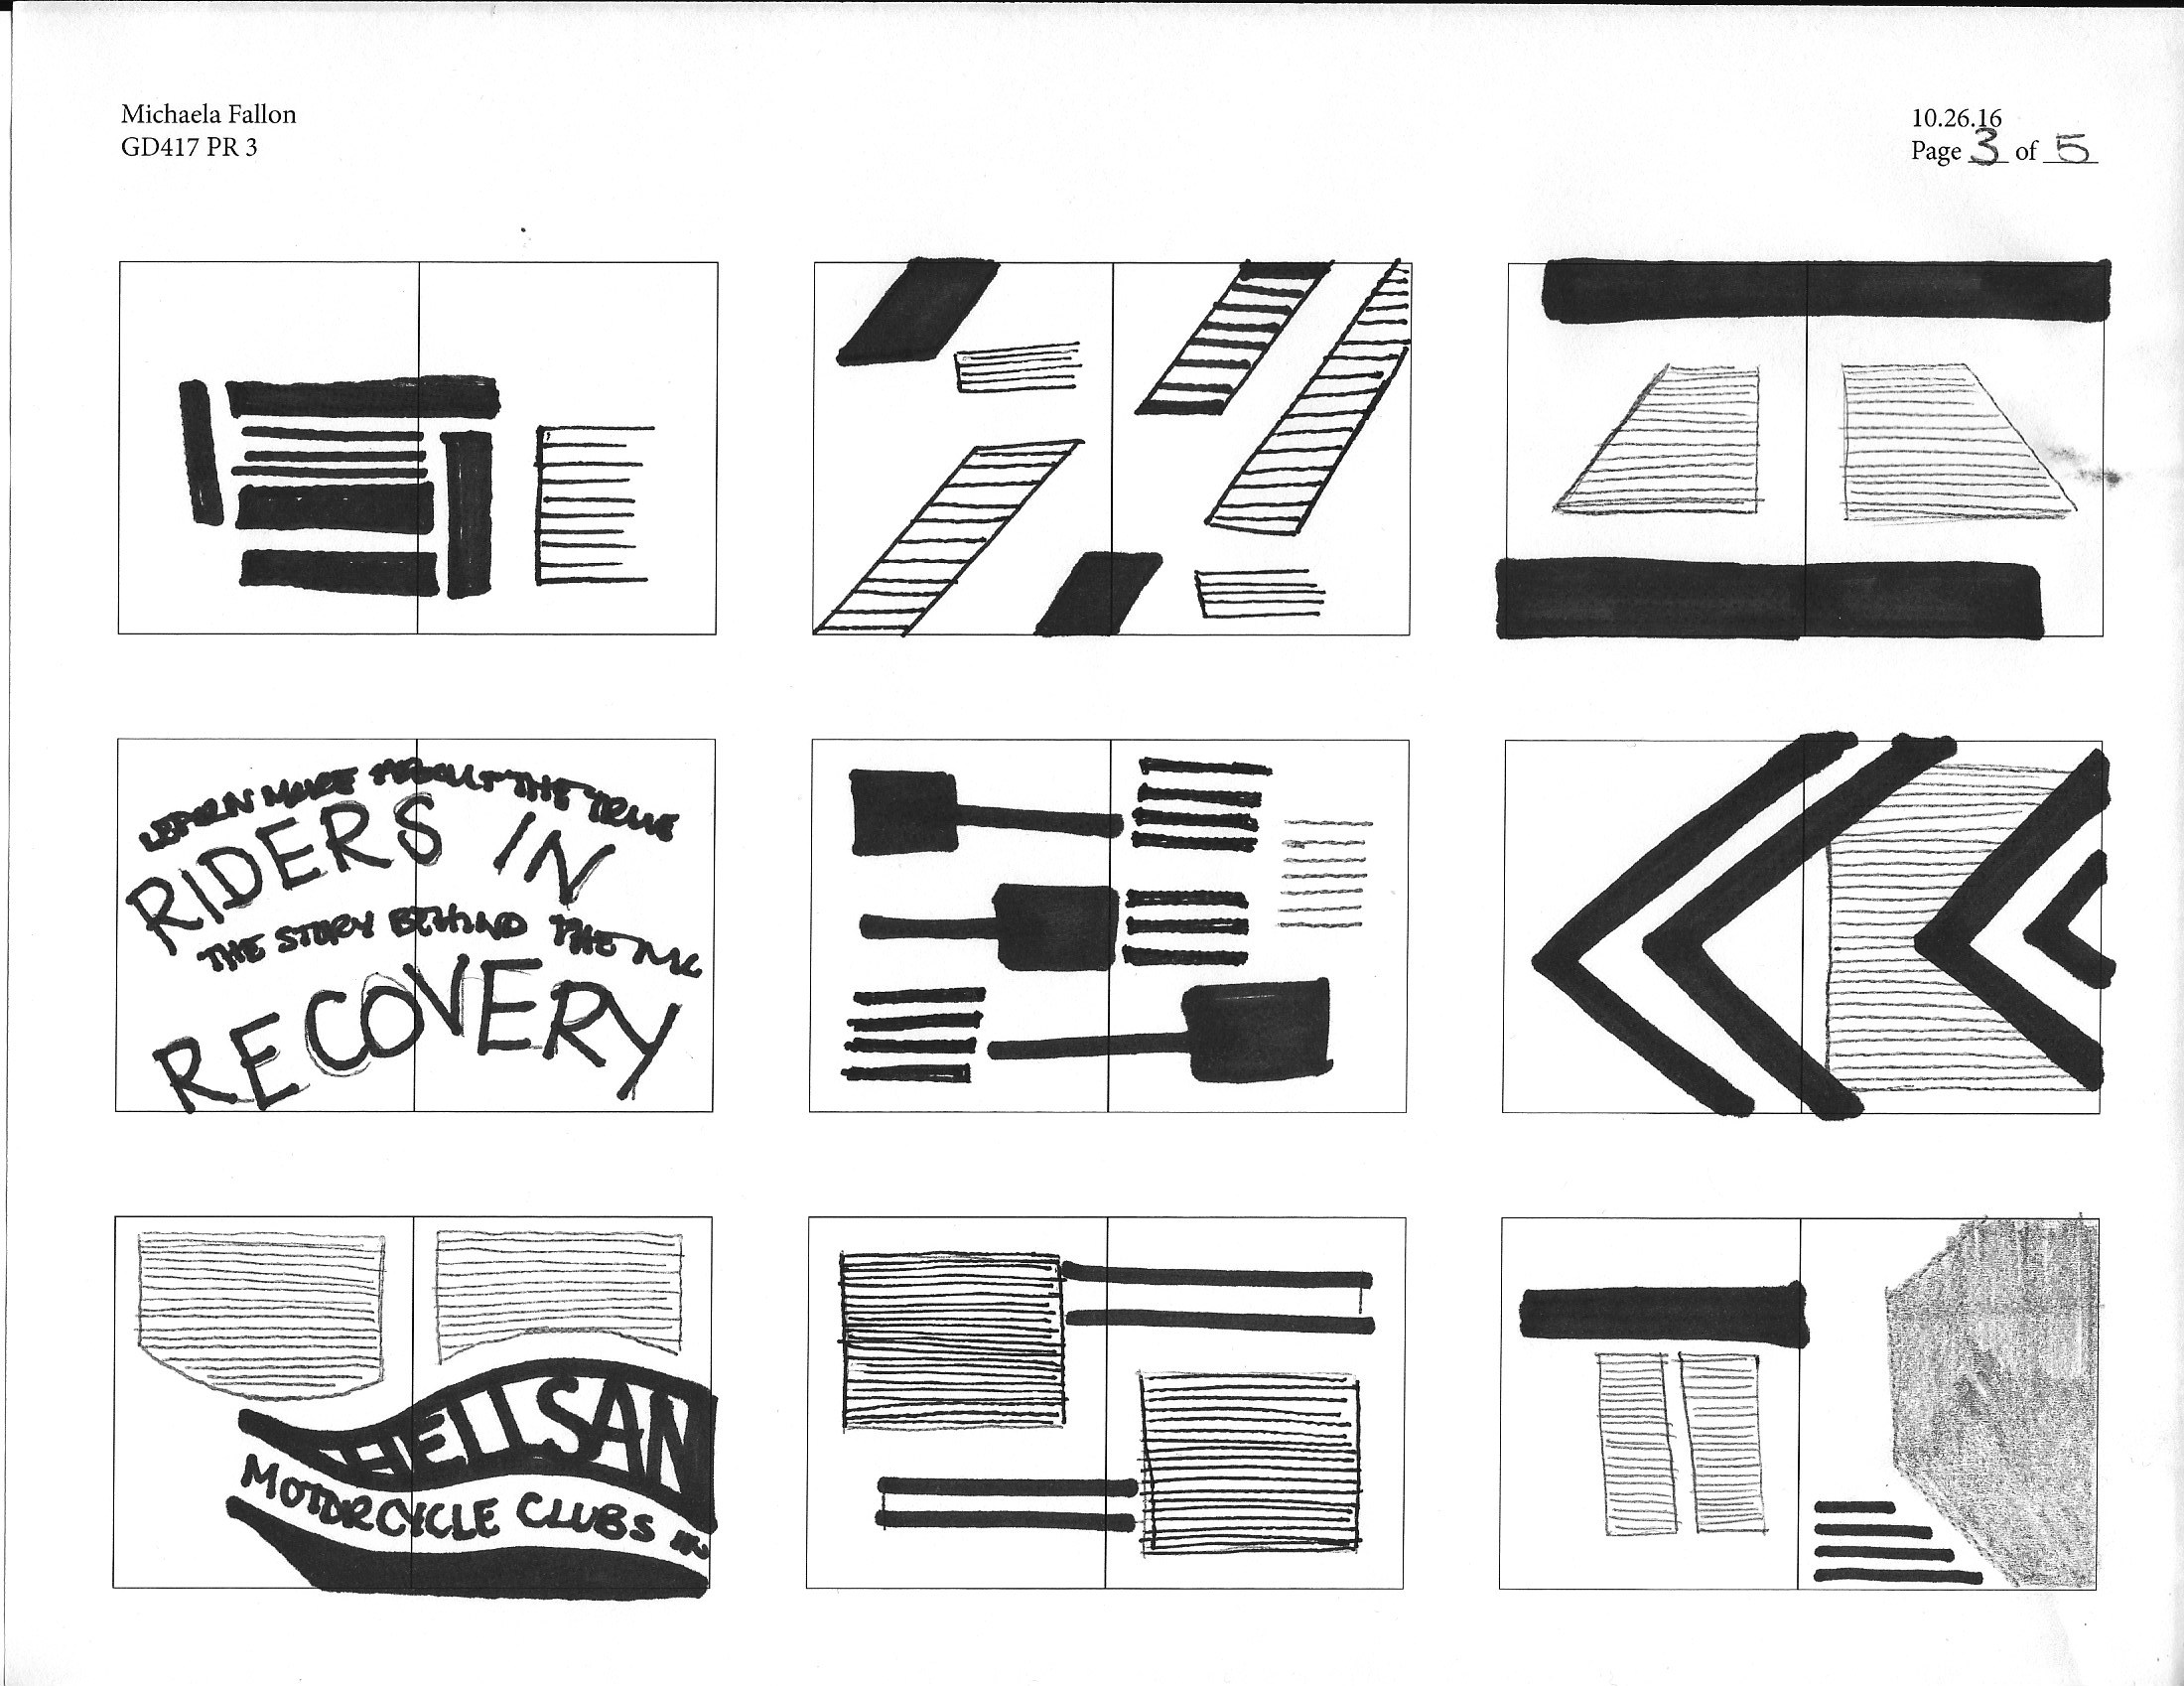 Michaela Fallon
GD417 PR 3
10.26.16
Page 3 of 5
LEARN MORE ABOUT THE TRUE
RIDERS IN
THE STORY BEHIND THE MC
RECOVERY
HELLSAN
MOTORCYCLE CLUBS